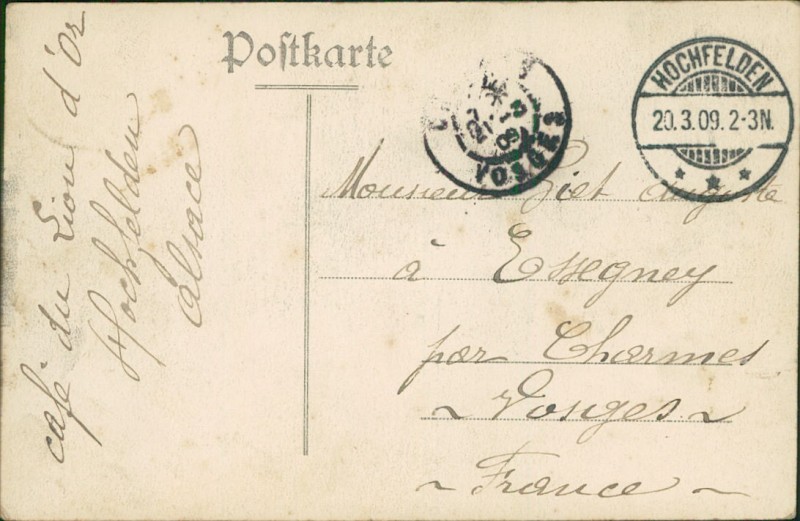 Postkarte
HOCHFELDEN
20.3.09.2-3N.
VOSGES
café du Lion d'Or
Hochfelden
Alsace
Monsieur Piet Auguste
à Essegney
par Charmes
~ Vosges ~
~ France ~